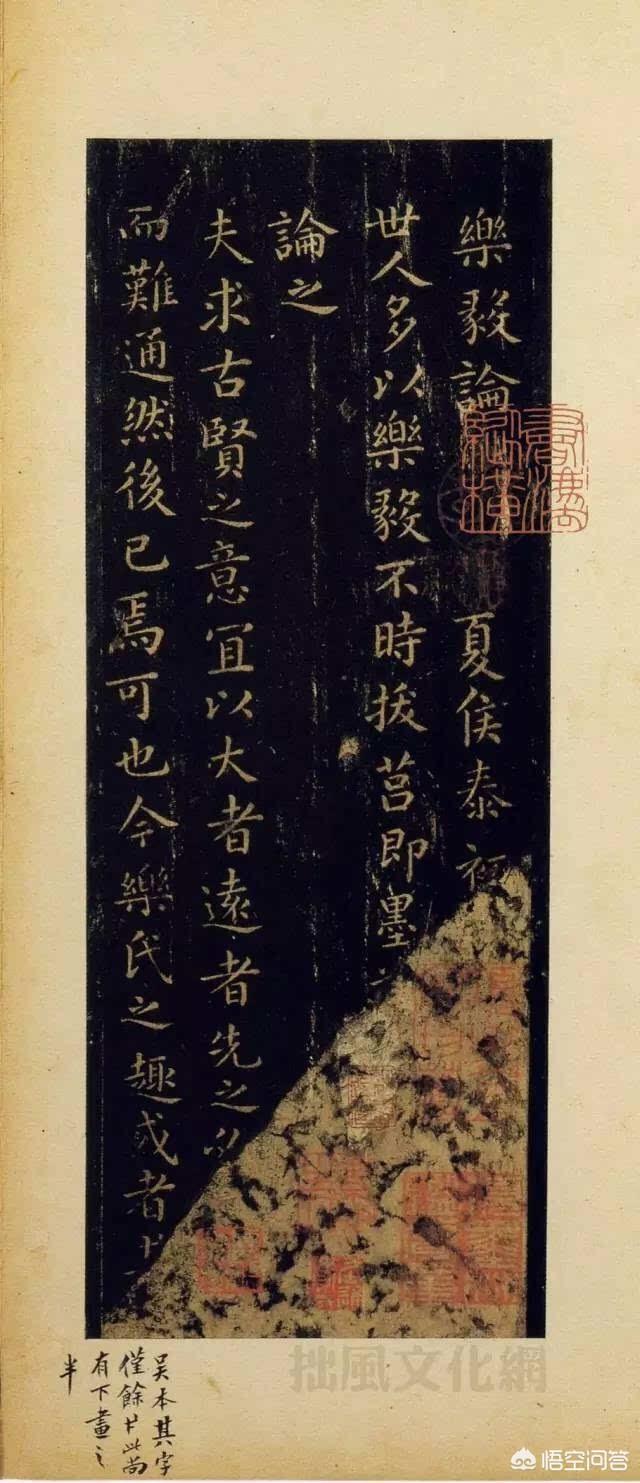 樂毅論 夏侯泰初
世人多以樂毅不時拔莒即墨
論之
夫求古賢之意宜以大者遠者先之
而難通然後已焉可也今樂氏之趣或者
吴本其字
僅餘此尚
有下畫之
半
拙風文化網
悟空问答